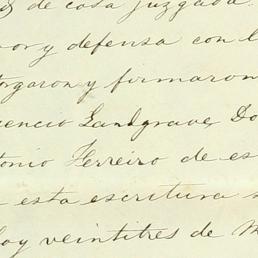 de cosa juzgada.
vor y defensa con l
orgaron y firmaron
encio Landgrave, Do
tonio Ferreiro de es
esta escritura s
hoy veintitres de M